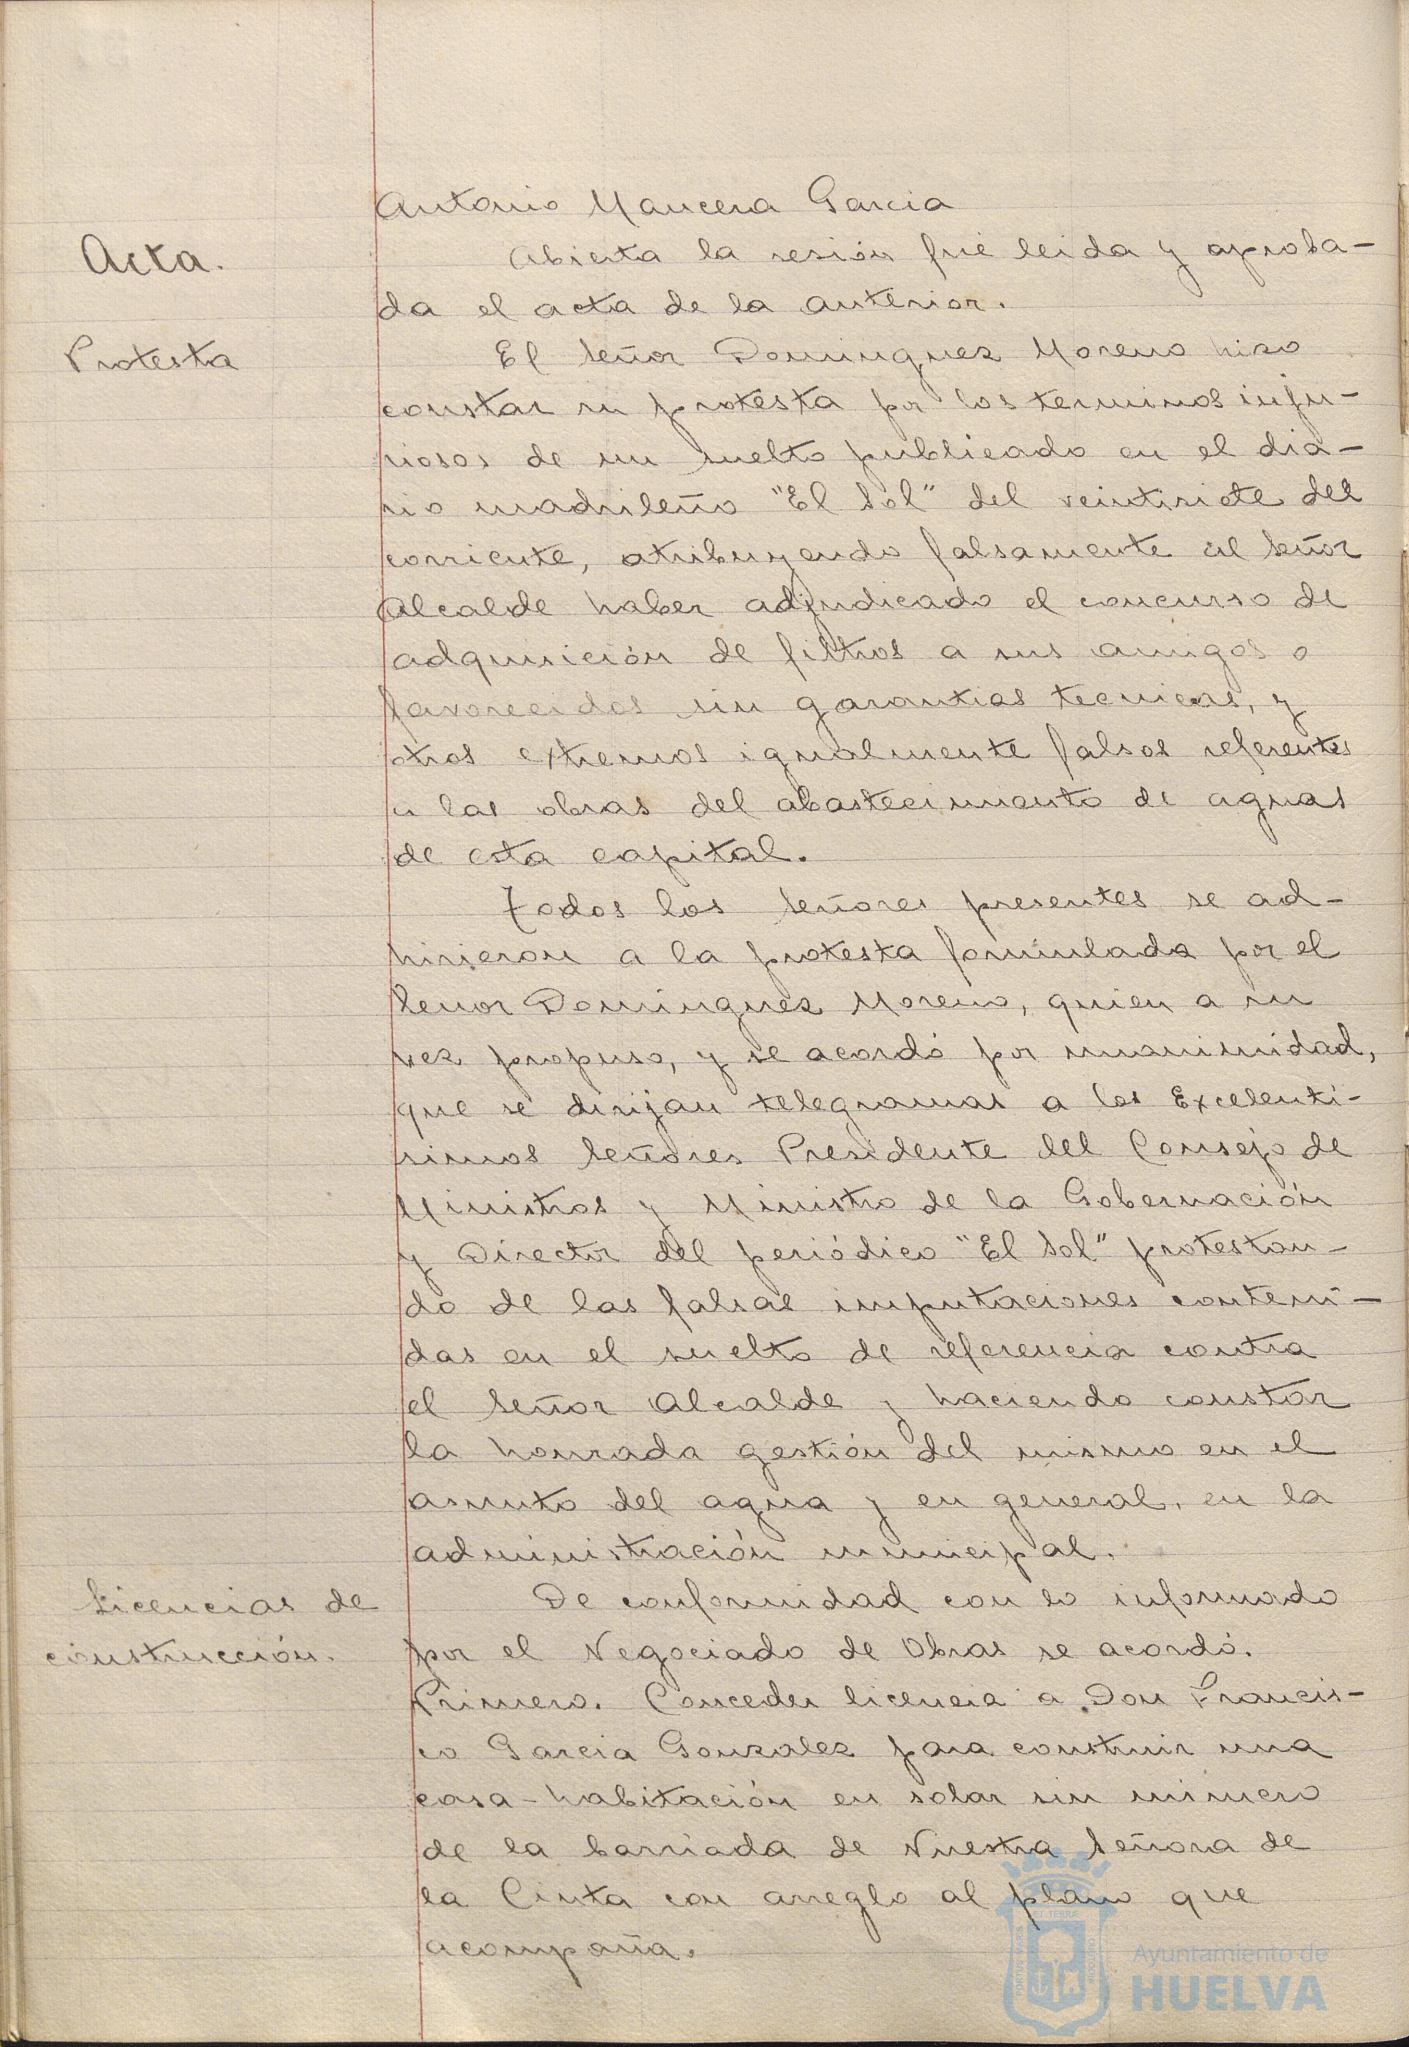 Antonio Mancera Garcia
Acta.
Abierta la sesión fué leida y aproba-
da el acta de la anterior.
Protesta
El Señor Dominguez Moreno hizo
constar su protesta por los terminos inju-
riosos de un suelto publicado en el dia-
rio madrileño "El Sol" del veintisiete del
corriente, atribuyendo falsamente al Señor
Alcalde haber adjudicado el concurso de
adquisición de filtros a sus amigos o
favorecidos sin garantias tecnicas, y
otros extremos igualmente falsos referentes
a las obras del abastecimiento de aguas
de esta capital.
Todos los Señores presentes se ad-
hirieron a la protesta formulada por el
Senor Dominguez Moreno, quien a su
vez propuso, y se acordó por unanimidad,
que se dirijan telegramas a los Excelenti-
simos Señores Presidente del Consejo de
Ministros y Ministro de la Gobernación
y Director del periódico "El Sol" protestan-
do de las falsas imputaciones conteni-
das en el suelto de referencia contra
el Señor Alcalde y haciendo constar
la honrada gestión del mismo en el
asunto del agua y en general, en la
administración municipal.
Licencias de
construcción.
De conformidad con lo informado
por el Negociado de Obras se acordó.
Primero. Conceder licencia a Don Francis-
co Garcia Gonzalez para construir una
casa-habitación en solar sin número
de la barriada de Nuestra Señora de
la Cinta con arreglo al plano que
acompaña.
Ayuntamiento de
HUELVA